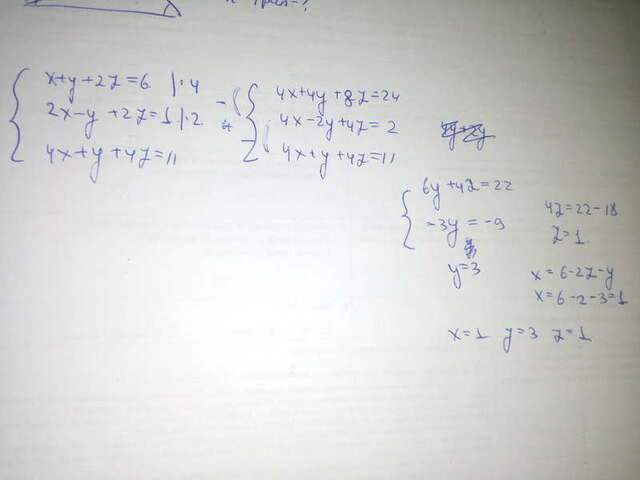 x+y+2z=6 |·4
2x-y+2z=1 |·2
4x+y+4z=11
4x+4y+8z=24
4x-2y+4z=2
4x+y+4z=11
6y+4z=22
-3y=-9
y=3
4z=22-18
z=1
x=6-2z-y
x=6-2-3=1
x=1 y=3 z=1